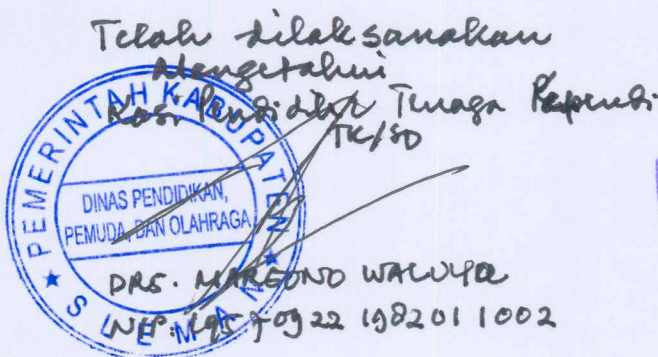 Telah dilaksanakan
Mengetahui
Kasi Pendidik Tenaga
TK/SD
PEMERINTAH KABUPATEN
DINAS PENDIDIKAN,
PEMUDA, DAN OLAHRAGA
★ SLEMAN ★
DRS. MARGONO WALUYO
NIP. 0922 198201 1002